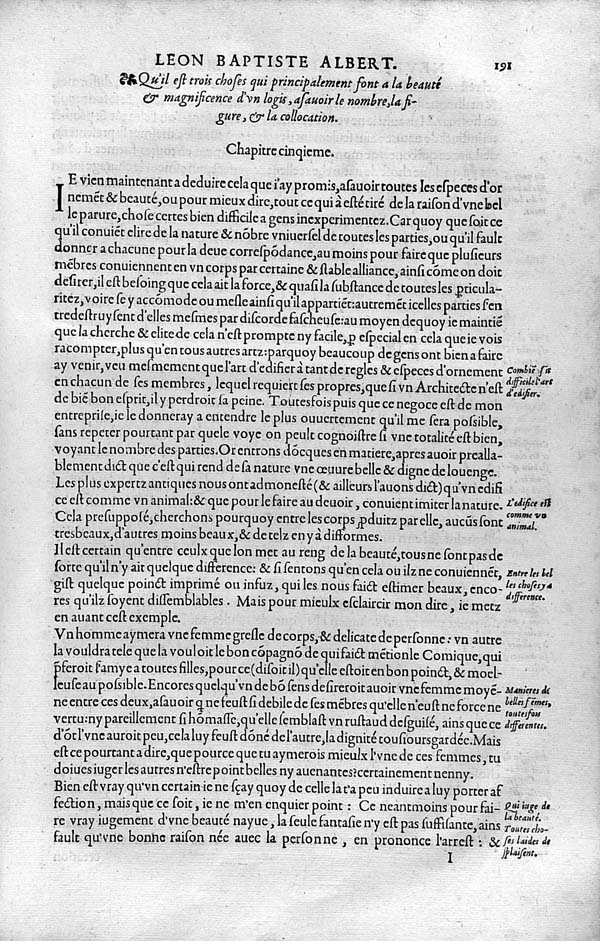 LEON BAPTISTE ALBERT. 191
Qu'il est trois choses qui principalement font a la beauté
& magnificence d'vn logis, asauoir le nombre, la fi-
gure, & la collocation.
Chapitre cinqieme.
IE vien maintenant a deduire cela que i'ay promis, asauoir toutes les especes d'or
nemēt & beauté, ou pour mieux dire, tout ce qui à esté tiré de la raison d'vne bel
le parure, chose certes bien difficile a gens inexperimentez. Car quoy que soit ce
qu'il conuiēt elire de la nature & nōbre vniuersel de toutes les parties, ou qu'il fault
donner a chacune pour la deue correspōdance, au moins pour faire que plusieurs
mēbres conuiennent en vn corps par certaine & stable alliance, ainsi cōme on doit
desirer, il est besoing que cela ait la force, & quasi la substance de toutes les ꝑticula-
ritez, voire se y accōmode ou mesle ainsi qu'il appartiēt: autremēt icelles parties s'en
tredestruysent d'elles mesmes par discorde fascheuse: au moyen dequoy ie maintiē
que la cherche & elite de cela n'est prompte ny facile, ꝑ especial en cela que ie vois
racompter, plus qu'en tous autres artz: parquoy beaucoup de gens ont bien a faire
ay venir, veu mesmement que l'art d'edifier à tant de regles & especes d'ornement
en chacun de ses membres, lequel requiert ses propres, que si vn Architecte n'est
de biē bon esprit, il y perdroit sa peine. Toutesfois puis que ce negoce est de mon
entreprise, ie le donneray a entendre le plus ouuertement qu'il me sera possible,
sans repeter pourtant par quele voye on peult cognoistre si vne totalité est bien,
voyant le nombre des parties. Or entrons dōcques en matiere, apres auoir preala-
blement dict que c'est qui rend de sa nature vne œuure belle & digne de louenge.
Les plus expertz antiques nous ont admonesté (& ailleurs l'auons dict) qu'vn edifi
ce est comme vn animal: & que pour le faire au deuoir, conuient imiter la nature.
Cela presupposé, cherchons pourquoy entre les corps ꝓduitz par elle, aucūs sont
tresbeaux, d'autres moins beaux, & de telz en y à difformes.
Il est certain qu'entre ceulx que lon met au reng de la beauté, tous ne sont pas de
sorte qu'il n'y ait quelque difference: & si sentons qu'en cela ou ilz ne conuiennēt,
gist quelque poinct imprimé ou infuz, qui les nous faict estimer beaux, enco-
res qu'ilz soyent dissemblables. Mais pour mieulx esclaircir mon dire, ie metz
en auant cest exemple.
Vn homme aymera vne femme gresle de corps, & delicate de personne: vn autre
la vouldra tele que la vouloit le bon cōpagnō de qui faict mētion le Comique, qui
p̄feroit s'amye a toutes filles, pour ce (disoit il) qu'elle estoit en bon poinct, & moel-
leuse au possible. Encores quelqu'vn de bō sens desireroit auoir vne femme moyē-
ne entre ces deux, asauoir q̄ ne feust si debile de ses mēbres qu'elle n'eust ne force ne
vertu: ny pareillement si hōmasse, qu'elle semblast vn rustaud desguisé, ains que ce
d'ōt l'vne auroit peu, cela luy feust dōné de l'autre, la dignité tousiours gardée. Mais
est ce pourtant a dire, que pource que tu aymerois mieulx l'vne de ces femmes, tu
doiues iuger les autres n'estre point belles ny auenantes? certainement nenny.
Bien est vray qu'vn certain ie ne sçay quoy de celle la t'a peu induire a luy porter af
fection, mais que ce soit, ie ne m'en enquier point: Ce neantmoins pour fai-
re vray iugement d'vne beauté nayue, la seule fantasie n'y est pas suffisante, ains
fault qu'vne bonne raison née auec la personne, en prononce l'arrest: &
I
Combiē est
difficile l'art
d'edifier.
L'edifice est
comme vn
animal.
Entre les bel
les choses y a
difference.
Manieres de
belles fēmes,
toutesfois
differentes.
Qui iuge de
la beauté.
Toutes cho-
ses laides de
splaisent.